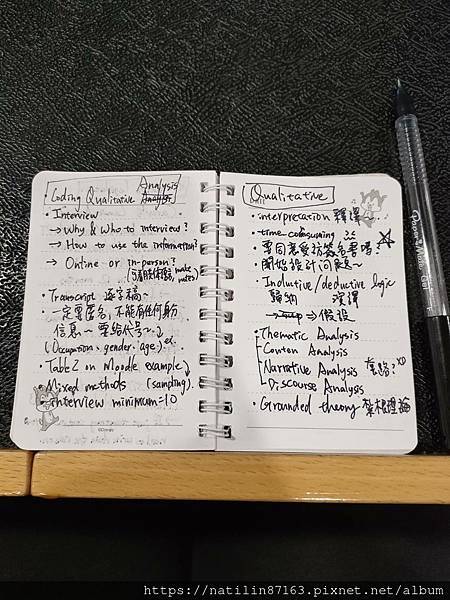 Coding Qualitative Analysis
• Interview
→ Why & Who to interview?
→ How to use the information?
→ Online or in-person?
(可看肢體語言, make notes)
• Transcript 逐字稿~
• 一定要匿名,不能有任何身份
信息~ 要給代号~
(Occupation、gender、age) ex.
• Table 2 on Moodle example
• Mixed methods (sampling).
• interview minimum=10
Qualitative
• interpretation 詮譯~
• time consuming
• 要同意受訪簽名書嗎?
• 開始設計问卷~
• Inductive/deductive logic
歸納 演譯
⇒假設
• Thematic Analysis
Conten Analysis
Narrative Analysis 套路? XD
Discourse Analysis
• Grounded theory 紮根理論
©Disney
https://natilin87163.pixnet.net/album